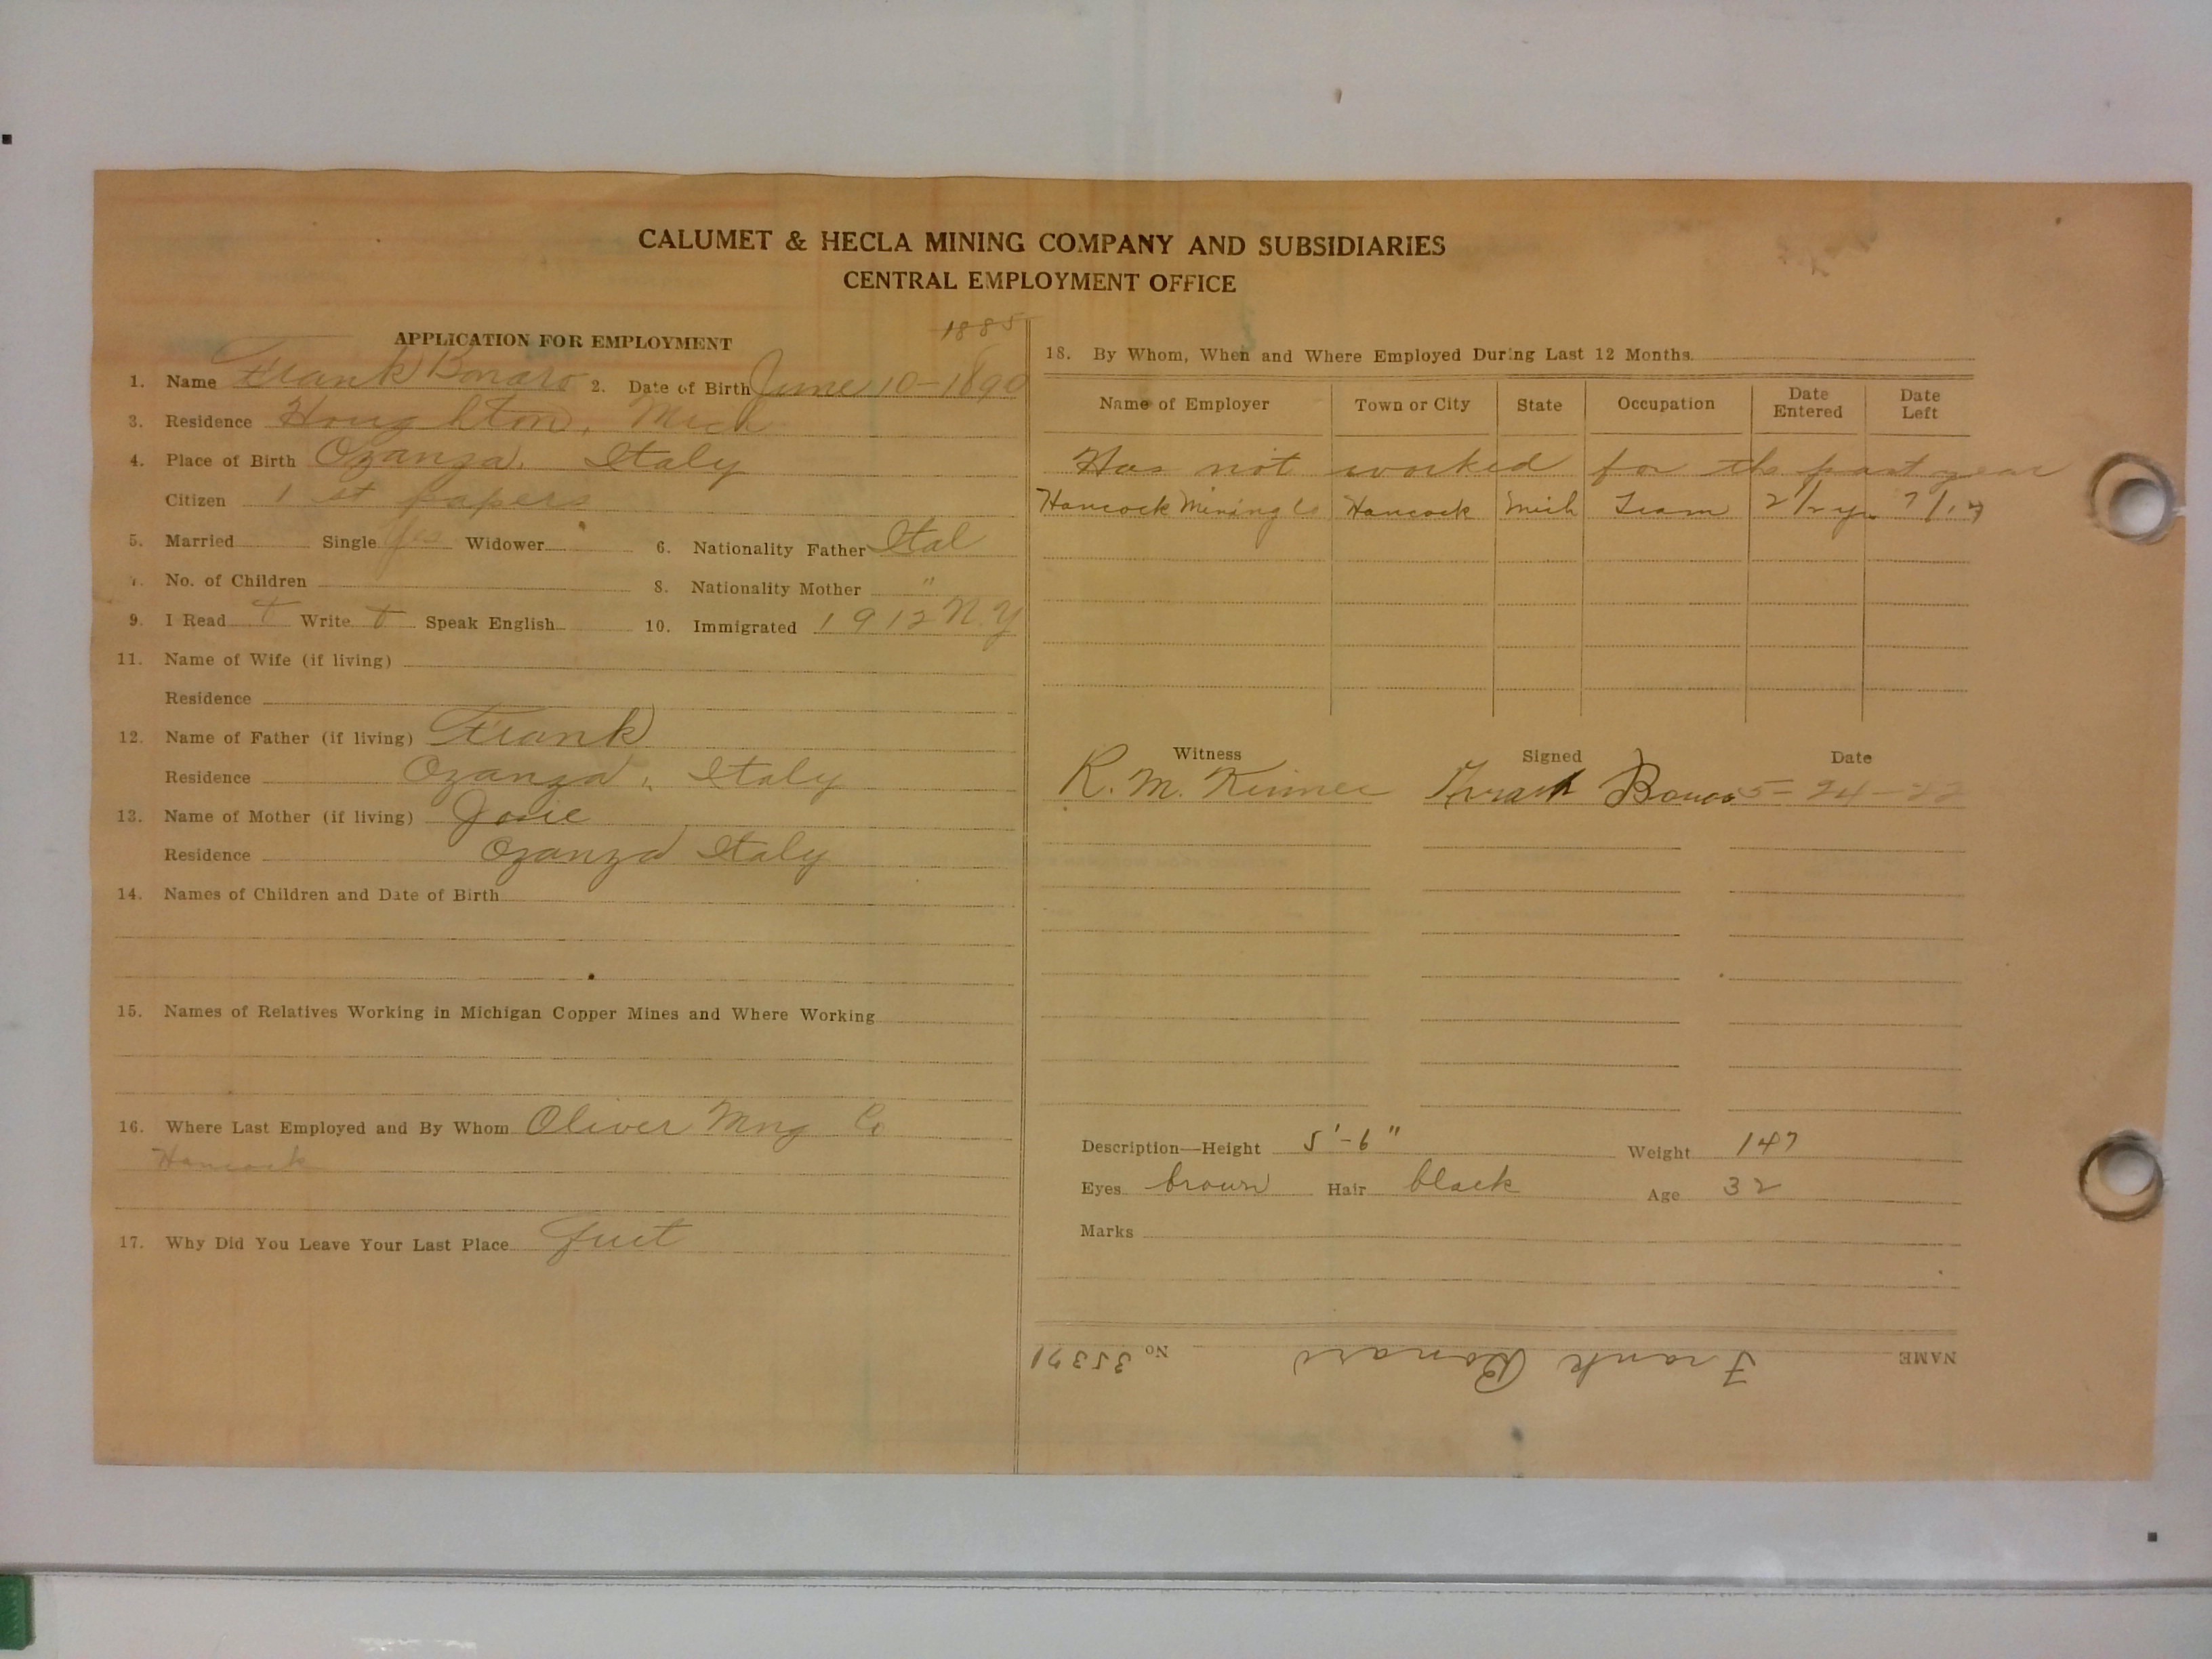 CALUMET & HECLA MINING COMPANY AND SUBSIDIARIES
CENTRAL EMPLOYMENT OFFICE
APPLICATION FOR EMPLOYMENT
1885
1. Name Frank Bonaro 2. Date of Birth June 10-1890
3. Residence Houghton, Mich
4. Place of Birth Ozanza, Italy
Citizen 1st papers
5. Married Single Yes Widower 6. Nationality Father Ital
7. No. of Children 8. Nationality Mother "
9. I Read Write Speak English 10. Immigrated 1912 N.Y
11. Name of Wife (if living)
Residence
12. Name of Father (if living) Frank
Residence Ozanza, Italy
13. Name of Mother (if living) Josie
Residence Ozanza Italy
14. Names of Children and Date of Birth
15. Names of Relatives Working in Michigan Copper Mines and Where Working
16. Where Last Employed and By Whom Oliver Mng Co
Hancock
17. Why Did You Leave Your Last Place Quit
18. By Whom, When and Where Employed During Last 12 Months.
Name of Employer Town or City State Occupation Date Entered Date Left
Has not worked for the past year
Hancock Mining Co Hancock Mich Tram 2 1/2 yr
Witness Signed Date
R. M. Frank 5-24-22
Description—Height 5'-6" Weight 147
Eyes brown Hair black Age 32
Marks
NAME Frank Bonaro No 35371